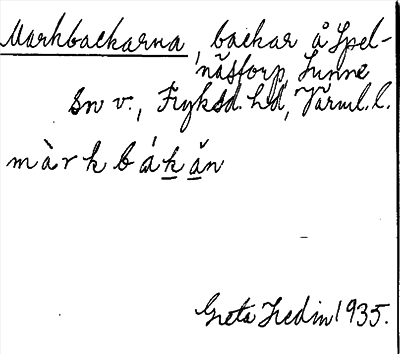 Markbackarna, backar å Spel-
näsforp, Sunne
sn v., Fryksd. hd, Värml. l.
màrkbákăn
Greta Hedin 1935.